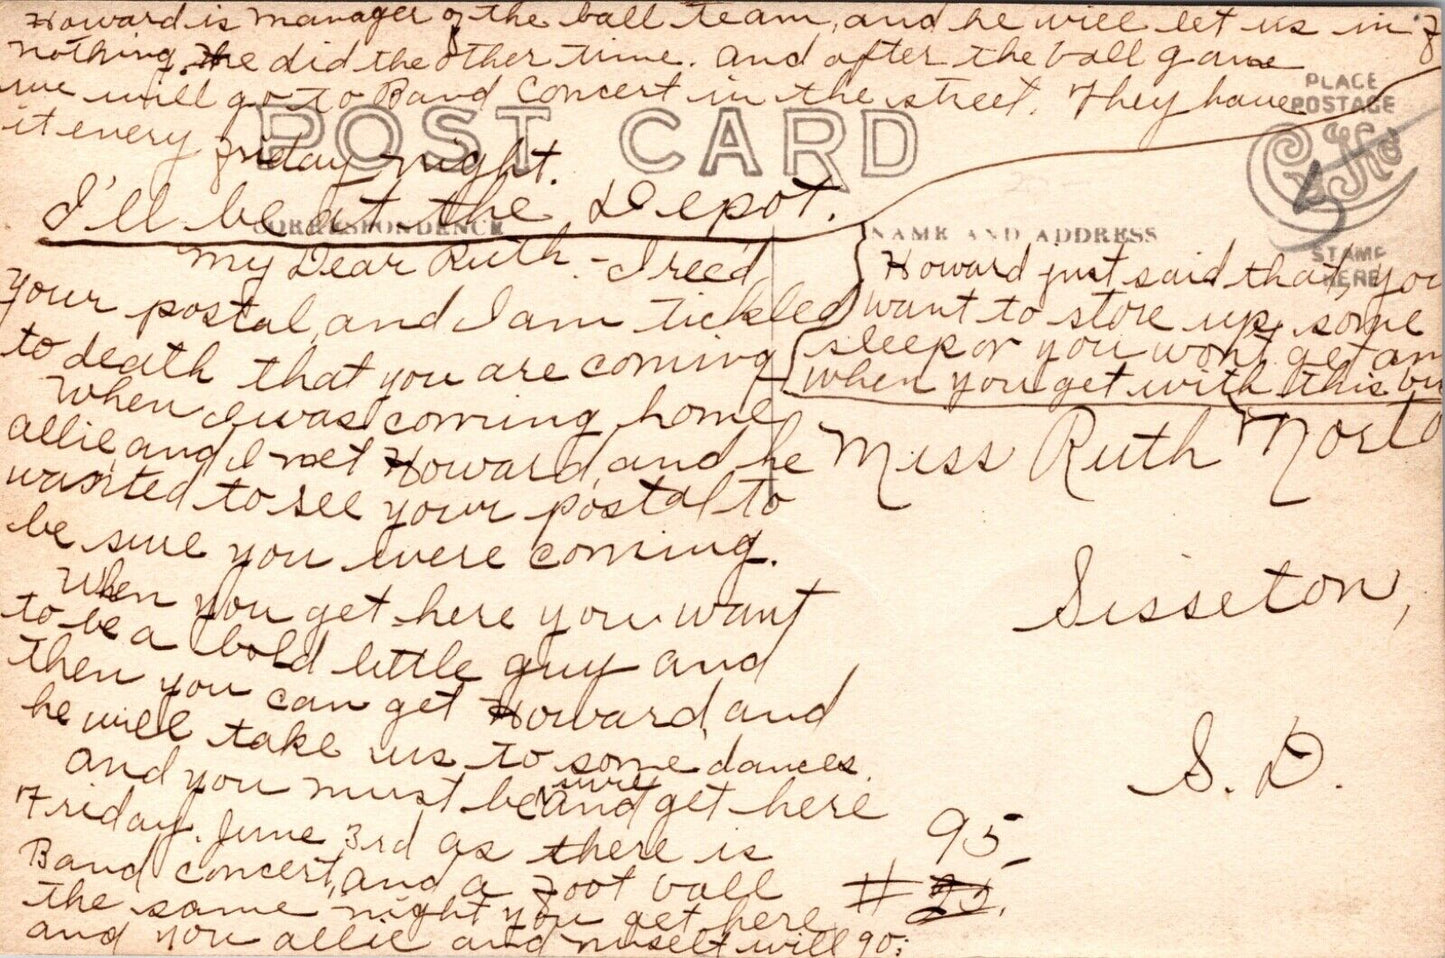 Howard is manager of the ball team, and he will let us in f
nothing. He did the other time. and after the ball game
we will go to Band Concert in the street. They have
it every Friday night.
I'll be at the Depot.
POST CARD
CORRESPONDENCE
My Dear Ruth.- I rec'd
your postal, and I am tickled
to death that you are coming
When I was coming home
allie, and I met Howard, and he
wanted to see your postal to
be sure you were coming.
When you get here you want
to be a bold little guy and
then you can get Howard, and
he will take us to some dances.
and you must be sure and get here
Friday. June 3rd as there is
Band concert, and a Foot ball
the same night you get here
and you allie and myself will go;
PLACE
POSTAGE
STAMP
HERE
NAME AND ADDRESS
Howard just said that, you
want to store up, some
sleep or you won't get an
when you get with this bu
Miss Ruth
Sisseton,
S. D.
95
#